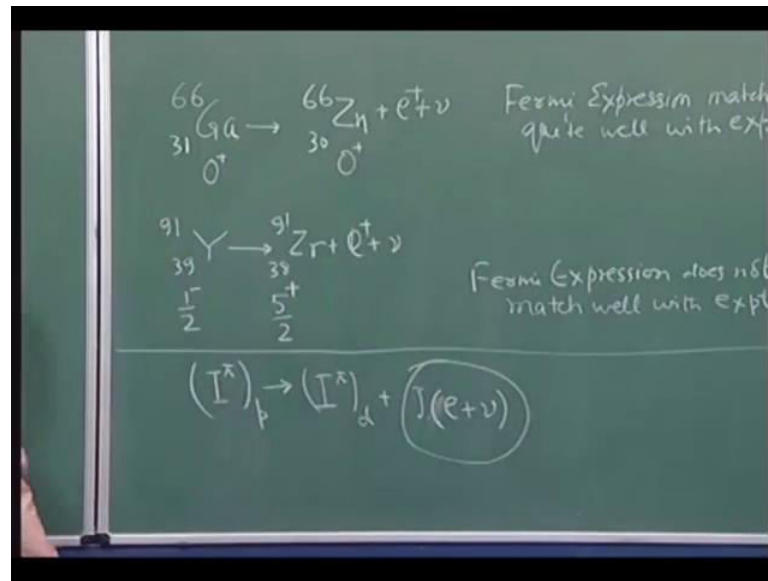 ⁶⁶₃₁Ga → ⁶⁶₃₀Zn + e⁺ + ν
0⁺ 0⁺
Fermi Expression match
quite well with exp
⁹¹₃₉Y → ⁹¹₃₈Zr + e⁺ + ν
1⁻/2 5⁺/2
Fermi Expression does not
match well with expt
(I^π)_p → (I^π)_d + J(e+ν)